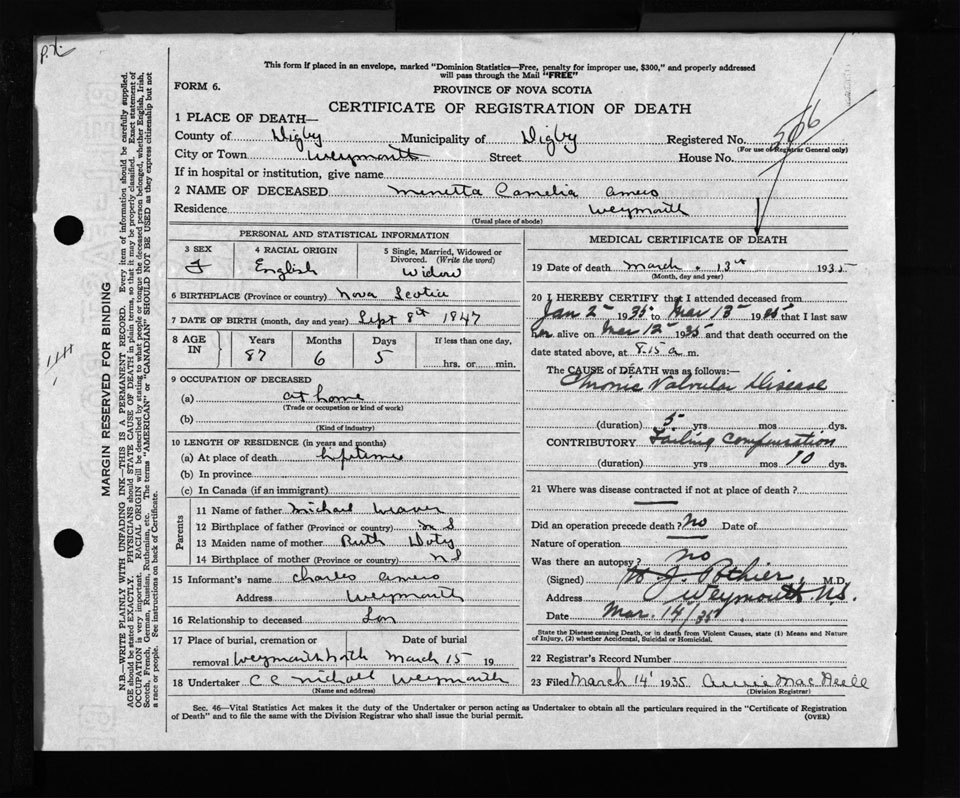 P.X.
This form if placed in an envelope, marked "Dominion Statistics—Free, penalty for improper use, $300," and properly addressed
will pass through the Mail "FREE"
FORM 6.
PROVINCE OF NOVA SCOTIA
CERTIFICATE OF REGISTRATION OF DEATH
1 PLACE OF DEATH—
County of Digby Municipality of Digby Registered No. 506
(For use of Registrar General only)
City or Town Weymouth Street House No.
If in hospital or institution, give name
2 NAME OF DECEASED Menetta Camelia Amero
Residence Weymouth
(Usual place of abode)
PERSONAL AND STATISTICAL INFORMATION
3 SEX 4 RACIAL ORIGIN 5 Single, Married, Widowed or
Divorced. (Write the word)
F English Widow
6 BIRTHPLACE (Province or country) Nova Scotia
7 DATE OF BIRTH (month, day and year) Sept 8th 1847
8 AGE IN Years Months Days If less than one day,
87 6 5 hrs. or min.
9 OCCUPATION OF DECEASED
(a) at home
(Trade or occupation or kind of work)
(b)
(Kind of industry)
10 LENGTH OF RESIDENCE (in years and months)
(a) At place of death lifetime
(b) In province
(c) In Canada (if an immigrant)
Parents
11 Name of father Michael Weaver
12 Birthplace of father (Province or country) N S
13 Maiden name of mother Ruth Doty
14 Birthplace of mother (Province or country) N S
15 Informant's name Charles Amero
Address Weymouth
16 Relationship to deceased Son
17 Place of burial, cremation or Date of burial
removal Weymouth North March 15 19
18 Undertaker C C Nichall Weymouth
(Name and address)
MEDICAL CERTIFICATE OF DEATH
19 Date of death March 13th 1935
(Month, day and year)
20 I HEREBY CERTIFY that I attended deceased from
Jan 2 1935 to Mar 13 1935 that I last saw
her alive on Mar 12 1935 and that death occurred on the
date stated above, at 8.15 a. m.
The CAUSE of DEATH was as follows:—
Chronic Valvular Disease
(duration) 5 yrs mos dys.
CONTRIBUTORY Failing Compensation
(duration) yrs mos 10 dys.
21 Where was disease contracted if not at place of death?
Did an operation precede death? No Date of
Nature of operation
Was there an autopsy? No
(Signed) J. Pothier, M.D.
Address Weymouth N.S.
Date Mar. 14/35
State the Disease causing Death, or in death from Violent Causes, state (1) Means and Nature
of Injury, (2) whether Accidental, Suicidal or Homicidal.
22 Registrar's Record Number
23 Filed March 14 1935 Annie MacNeill
(Division Registrar)
Sec. 46—Vital Statistics Act makes it the duty of the Undertaker or person acting as Undertaker to obtain all the particulars required in the "Certificate of Registration
of Death" and to file the same with the Division Registrar who shall issue the burial permit.
(OVER)
MARGIN RESERVED FOR BINDING
N.B.—WRITE PLAINLY WITH UNFADING INK—THIS IS A PERMANENT RECORD. Every item of information should be carefully supplied.
AGE should be stated EXACTLY. PHYSICIANS should STATE CAUSE OF DEATH in plain terms, so that it may be properly classified. Exact statement of
OCCUPATION is very important. RACIAL ORIGIN will be described by stating to what people or tongue the deceased person belonged, whether English, Irish,
Scotch, French, German, Russian, Ruthenian, etc. The terms "AMERICAN" or "CANADIAN" SHOULD NOT BE USED as they express citizenship but not
a race or people. See instructions on back of Certificate.